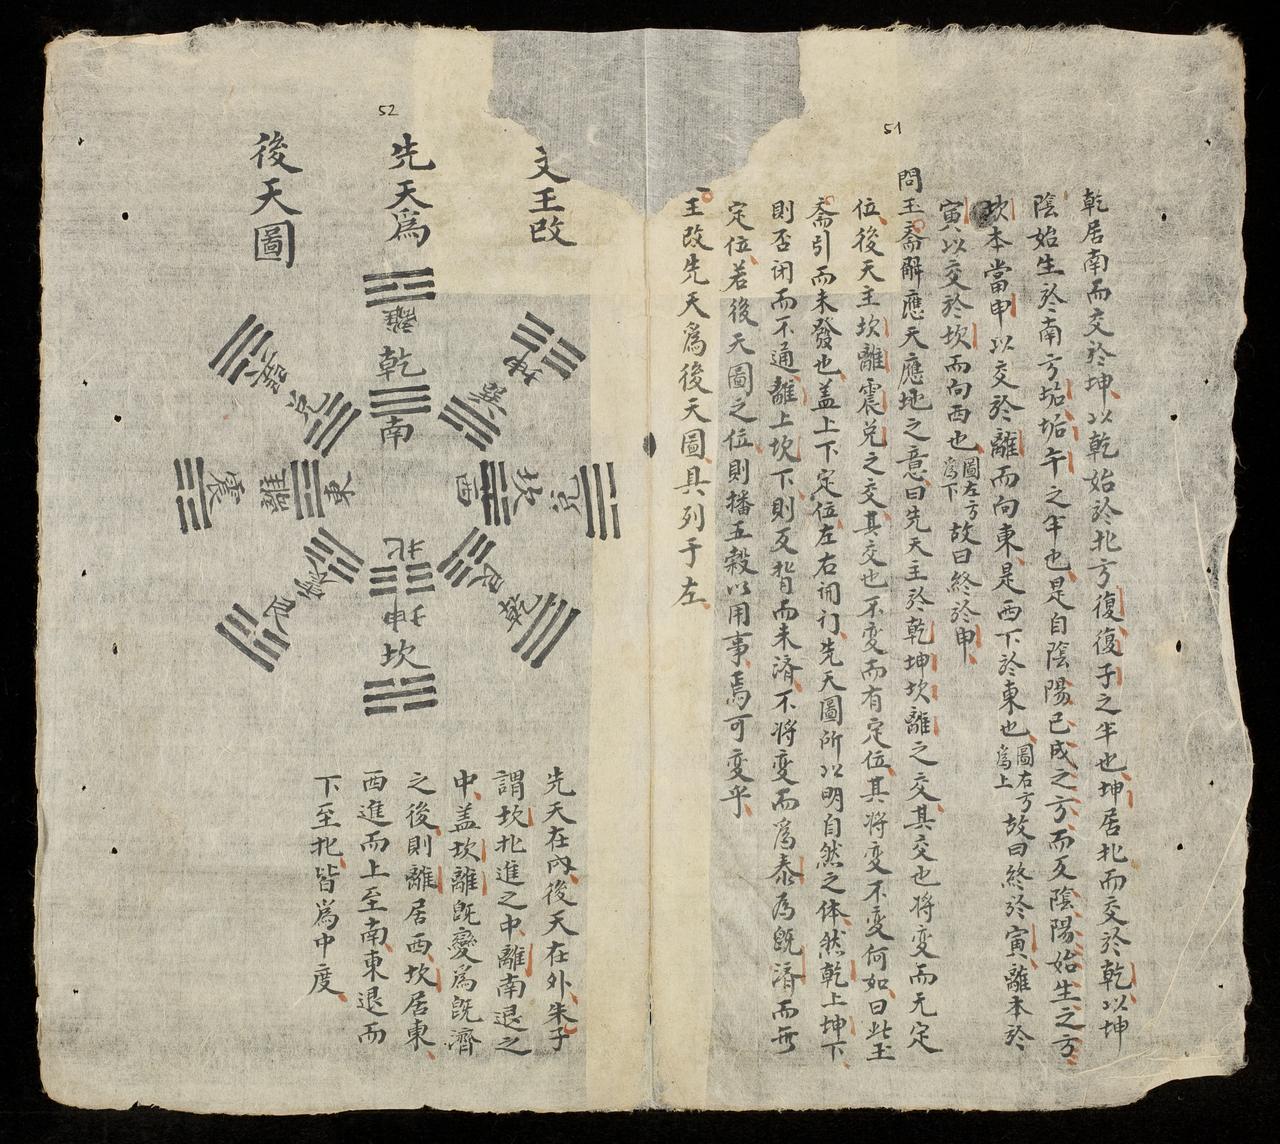 51
乾居南而交於坤以乾始於北方復復子之半也坤居北而交於乾以坤
陰始生於南方垢垢午之半也是自陰陽已成之方而反陰陽始生之方
坎本當申以交於離而向東是西下於東也圖右方爲上故曰終於寅離本於
寅以交於坎而向西也圖左方爲下故曰終於申
問玉齋觧應天應地之意曰先天主於乾坤坎離之交其交也将变而无定
位後天主坎離震兑之交其交也不变而有定位其将变不变何如曰此玉
齋引而未發也盖上下定位左右闹门先天圖所以明自然之体然乾上坤下
則否闭而不通離上坎下則反背而未濟不将变而爲泰为旣濟而哥
定位若後天圖之位則播五榖以用事焉可变乎
王改先天爲後天圖具列于左
52
文王改
先天爲
後天圖
離
乾
南
坤
巽
兑
坎
西
乾
艮
北
坤
坎
艮
震
震
離
東
巽
兑
先天在內後天在外朱子
謂坎北進之中離南退之
中盖坎離旣變爲旣濟
之後則離居西坎居東
西進而上至南東退而
下至北皆爲中度